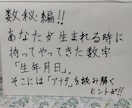 数秘編!!
あなたが生まれる時に
持ってやってきた数字
「生年月日」
そこには「アナタ」を読み解く
ヒントが!!